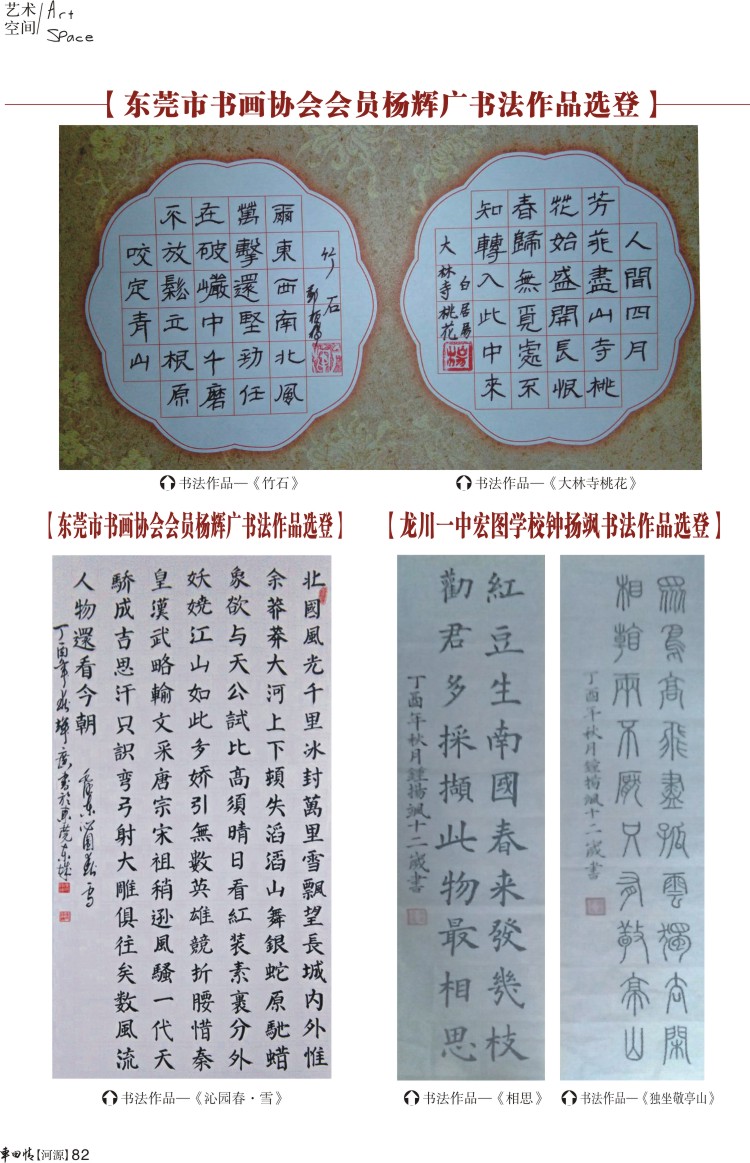 艺术
空间
Art
Space
【东莞市书画协会会员杨辉广书法作品选登】
咬定青山
不放鬆立根原
在破巗中千磨
萬擊還堅勁任
爾東西南北風
竹石
人間四月
芳菲盡山寺桃
花始盛開長恨
春歸無覓處不
知轉入此中來
白居易
大林寺桃花
书法作品—《竹石》
书法作品—《大林寺桃花》
【东莞市书画协会会员杨辉广书法作品选登】
【龙川一中宏图学校钟扬飒书法作品选登】
北國風光千里冰封萬里雪飄望長城内外惟
余莽莽大河上下頓失滔滔山舞銀蛇原馳蜡
象欲与天公試比高須晴日看紅装素裹分外
妖娆江山如此多娇引無數英雄競折腰惜秦
皇漢武略輸文采唐宗宋祖稍逊風騷一代天
驕成吉思汗只識弯弓射大雕俱往矣数風流
人物還看今朝
丁酉年
紅豆生南國春来發幾枝
勸君多採擷此物最相思
丁酉年秋月鍾揚颯十二歲書
眾鳥高飛盡孤雲獨去閑
相看兩不厭只有敬亭山
丁酉年秋月鍾揚颯十二歲書
书法作品—《沁园春·雪》
书法作品—《相思》
书法作品—《独坐敬亭山》
车田情【河源】82